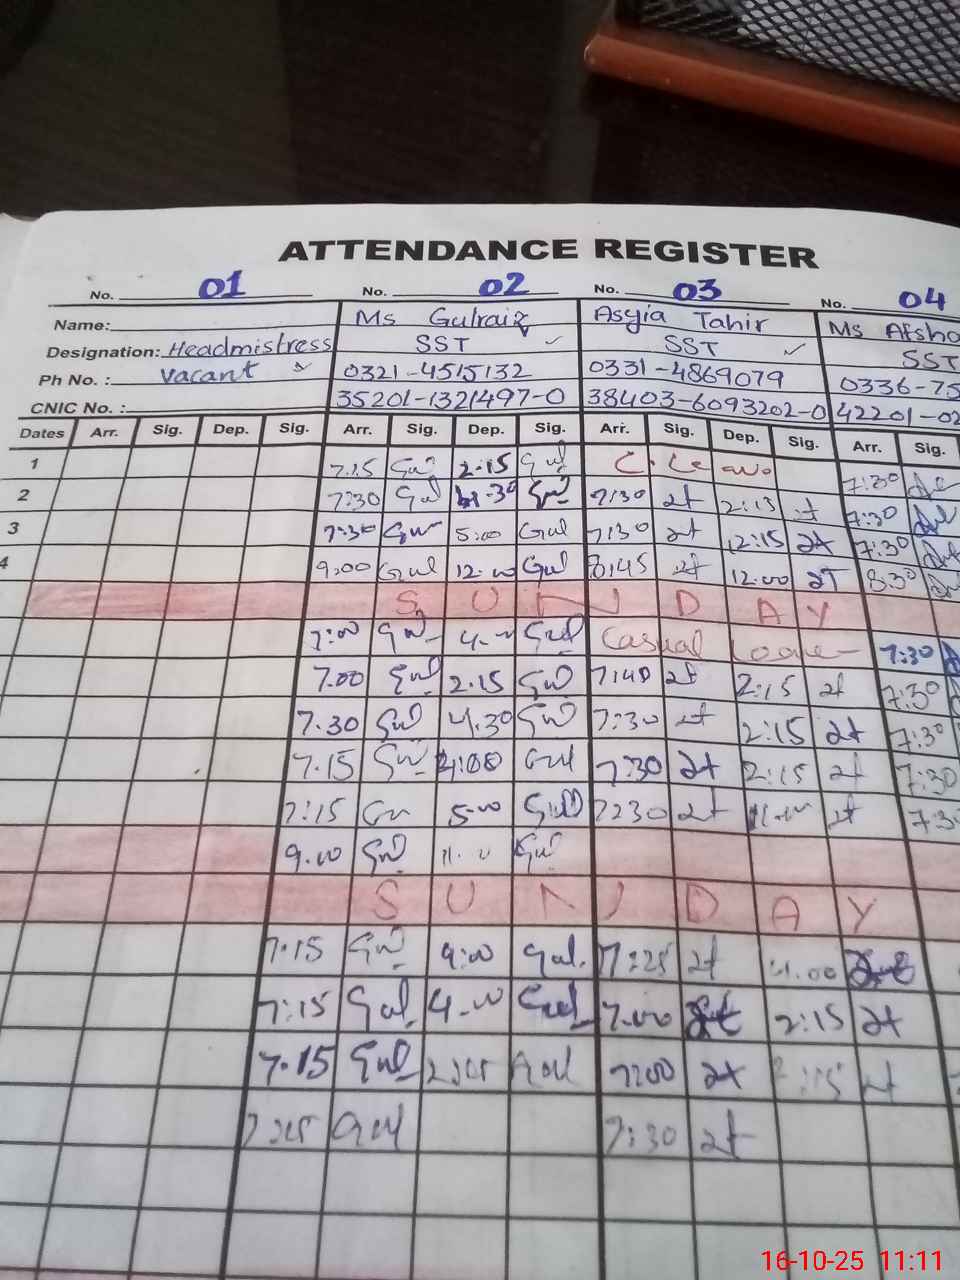 ATTENDANCE REGISTER
No. 01 No. 02 No. 03 No. 04
Name: Ms Gulraiz Asyia Tahir Ms Afsho
Designation: Headmistress SST SST SST
Ph No. : Vacant 0321-4515132 0331-4869079 0336-75
CNIC No. : 35201-1321497-0 38403-6093202-0 42201-02
Dates Arr. Sig. Dep. Sig. Arr. Sig. Dep. Sig. Arr. Sig. Dep. Sig. Arr. Sig.
1 7.15 Gul 2.15 Gul C. Leave 7:30
2 7:30 Gul 30 Gul 7:30 at 2:15 at 7:30
3 7:30 Gul 5:00 Gul 7:30 at 2:15 at 7:30
4 9:00 Gul 12:00 Gul 8:45 at 12:00 at 8:30
SUNDAY
7:00 Gul 4.00 Gul Casual Leave 7:30
7.00 Gul 2.15 Gul 7:40 at 2:15 at 7:30
7.30 Gul 4.30 Gul 7:30 at 2:15 at 7:30
7.15 Gul 4:00 Gul 7:30 at 2:15 at 7:30
7:15 Gul 5:00 Gul 7:30 at at 7:3
9.00 Gul 11.00 Gul
SUNDAY
7.15 Gul 4:00 Gul. 7:25 at 4.00
7:15 Gul 4.00 Gul 7.00 2:15 at
7.15 Gul Gul 7:00 at 2:15 at
7:15 Gul 7:30 at
16-10-25 11:11